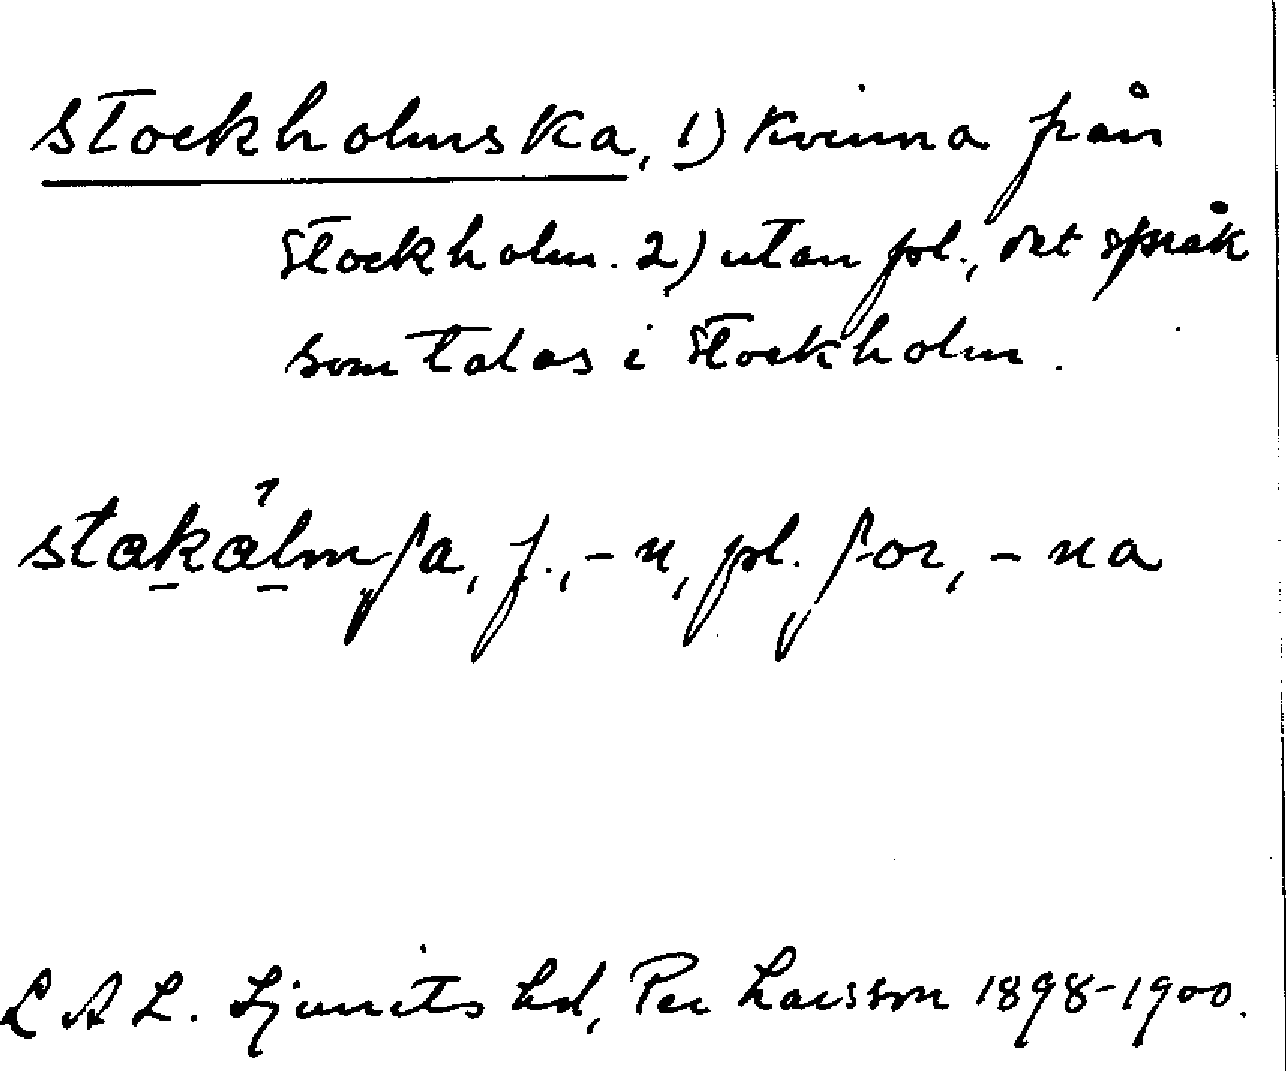 stockholmska, 1) kvinna från
Stockholm. 2) utan pl., det språk
som talas i Stockholm.
stakålmʃa, f., -n, pl. ʃor, -na
L A L. Ljunits hd, Per Larsson 1898-1900.